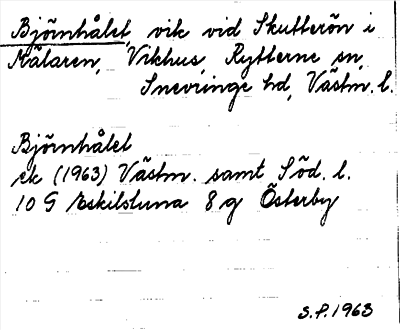 Björnhålet, vik vid Skutterön i
Mälaren, Vikhus, Rytterne sn,
Snevringe hd, Västm. l.
Björnhålet
ek (1963) Västm. samt Söd. l.
10 G Eskilstuna 8 g Österby
S.P. 1963